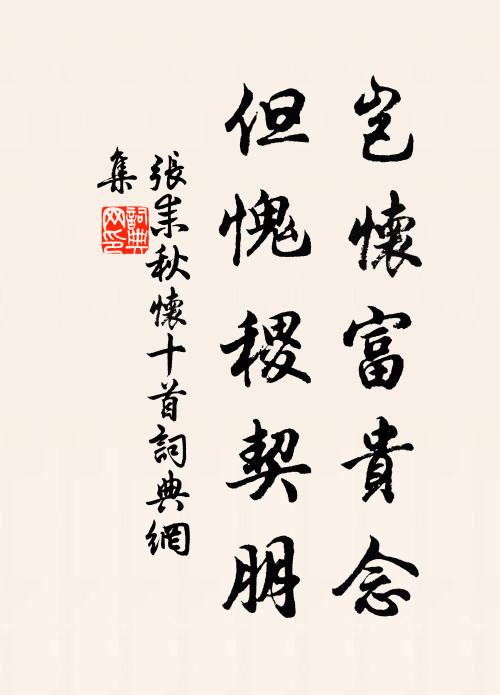 豈懷富貴念
但愧稷契朋
張耒秋懷十首詞典網
集
詞典
网印